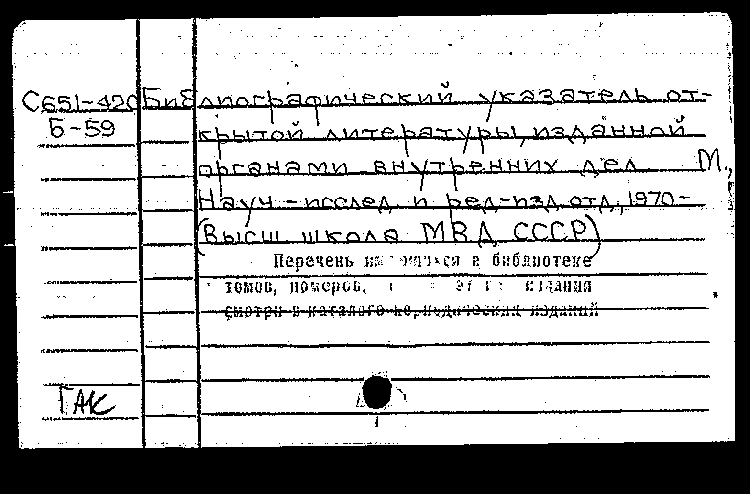 С651-420 Библиографический указатель от-
Б-59 крытой литературы, изданной
органами внутренних дел М.,
Науч.-исслед. и ред-изд. отд., 1970-
(Высш школа МВД СССР)
Перечень имеющихся в библиотеке
томов, номеров, издания
смотри в каталоге периодических изданий
ГАК